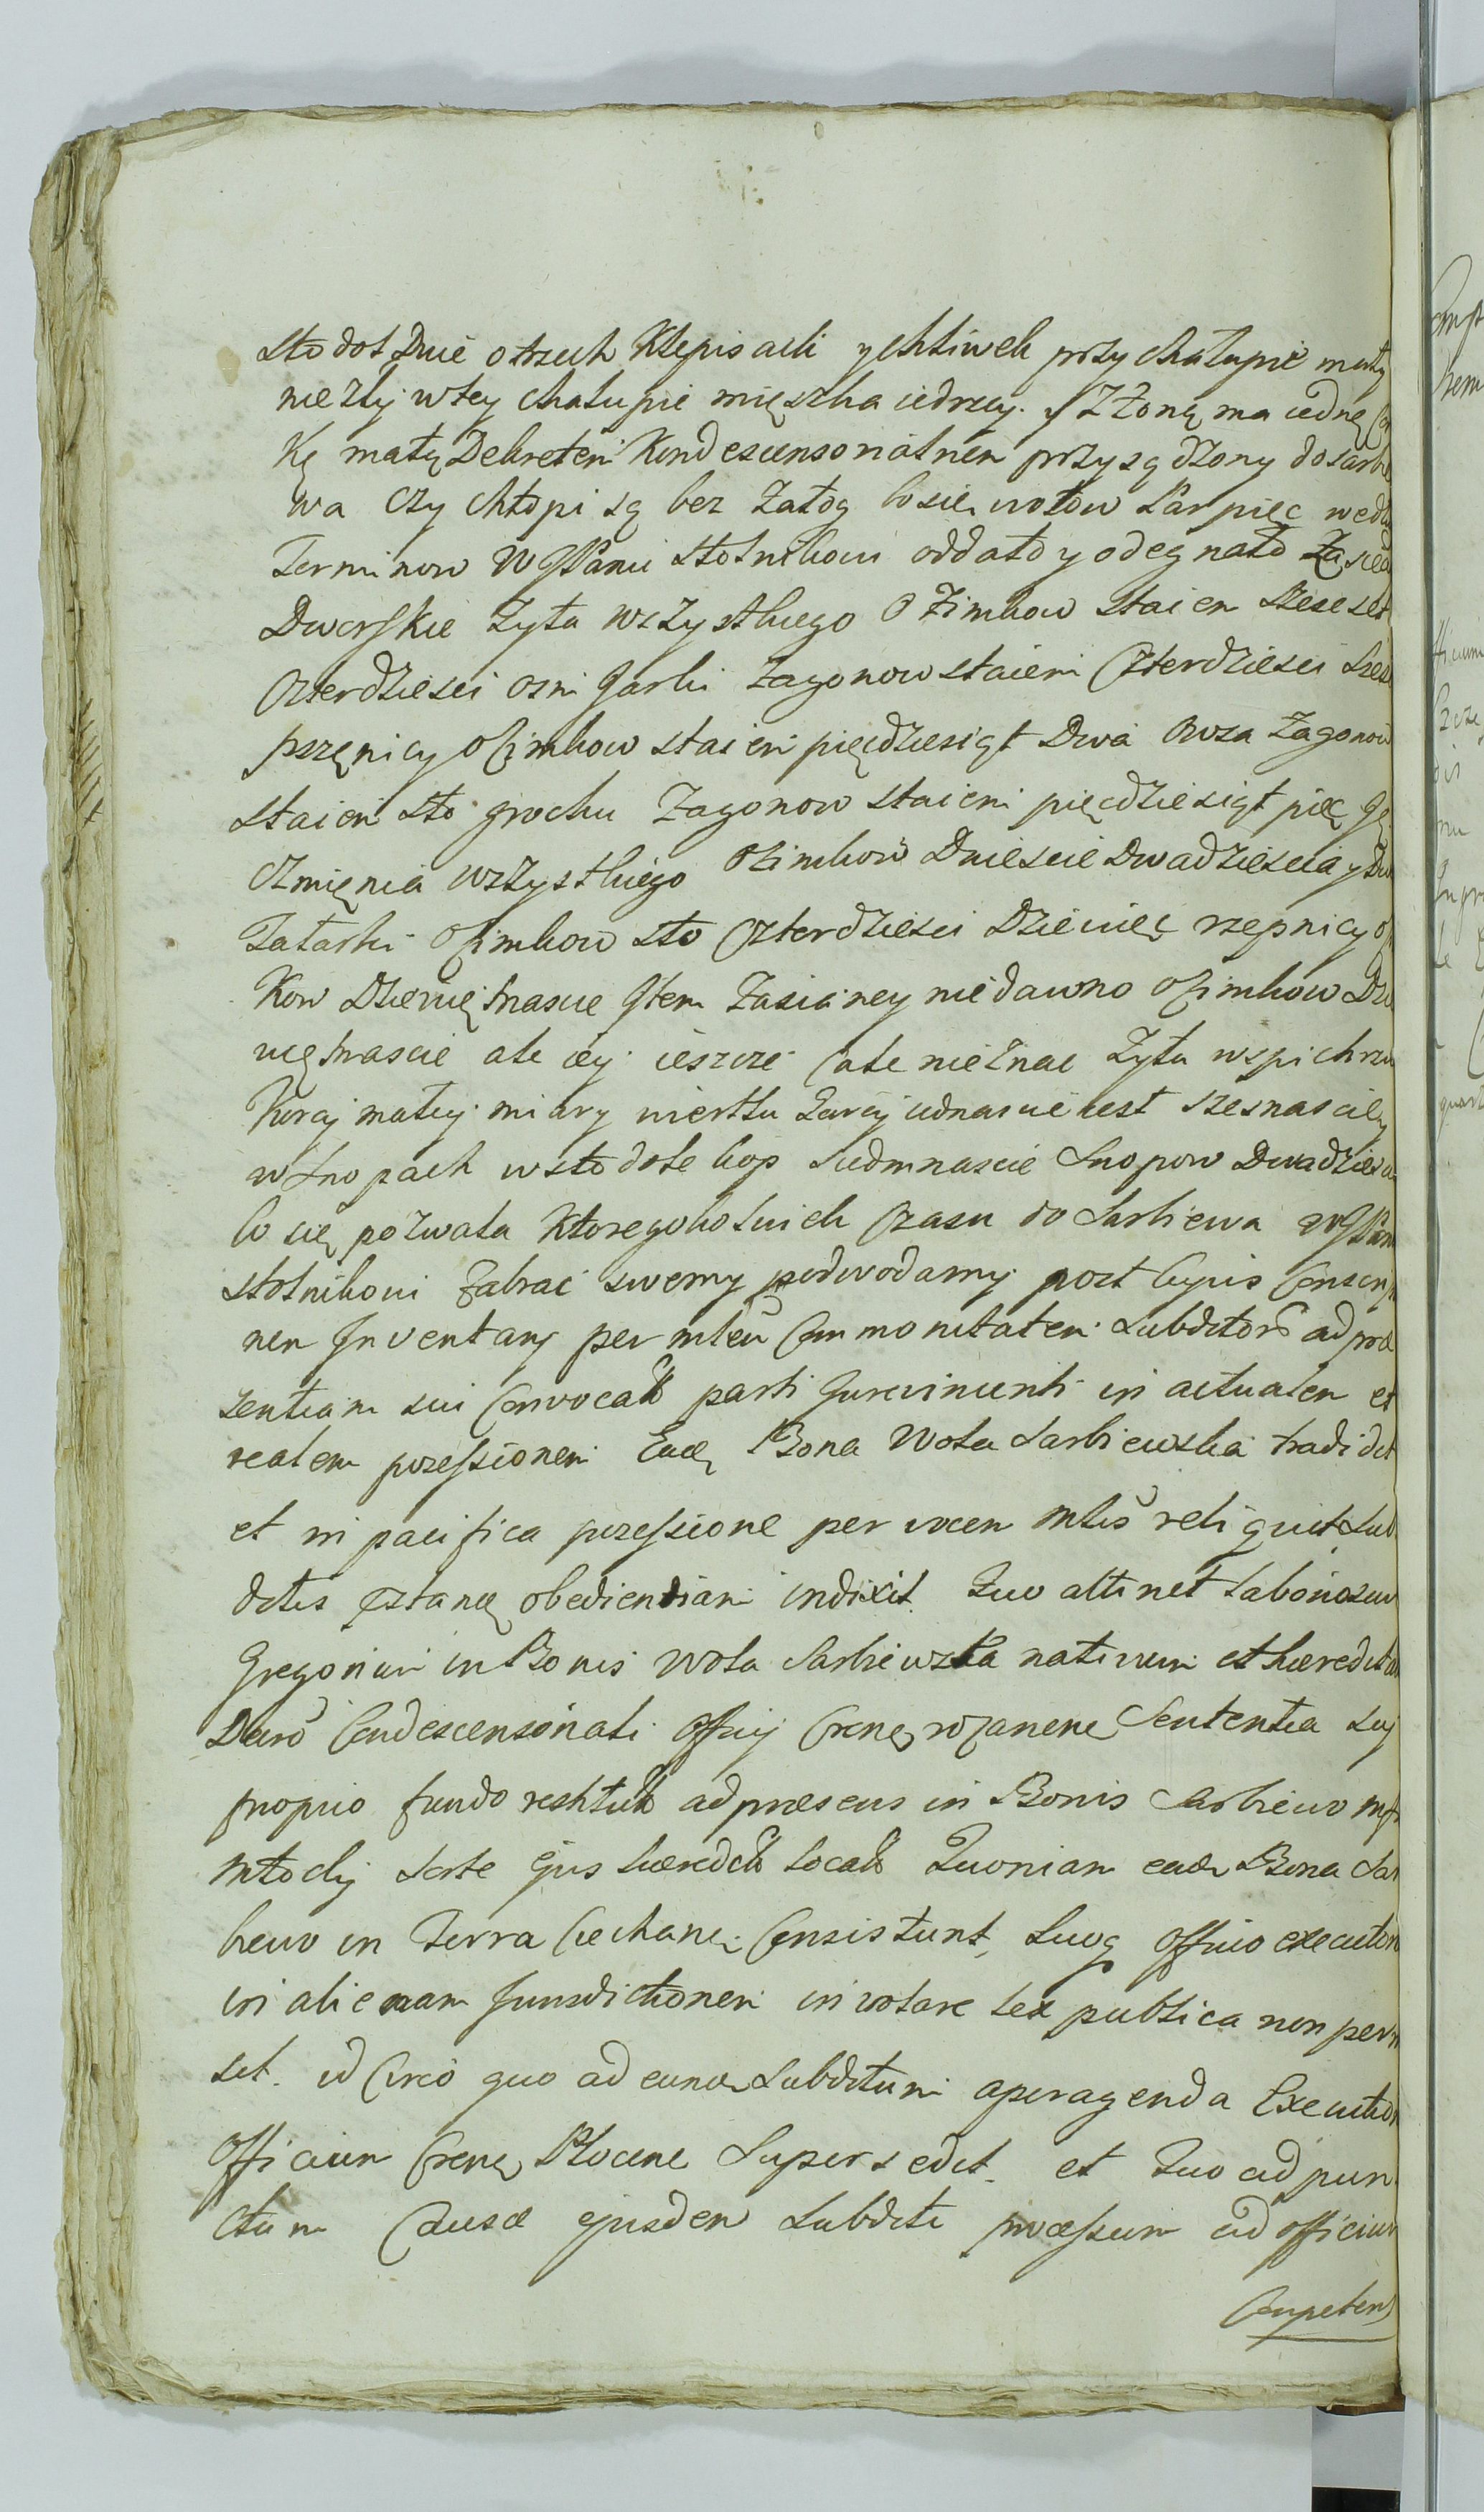 Stodoł Dwie o trzech Klepisach y chliwek przy chałupie mały
niezły w tey chałupie mięszka iedrzey. y Z Zoną ma iednę
Kę małą Dekretem Kondescensonalnem przysądzony do sarbie
wa Czy chłopi są bez Załog bo się wołow Par pięc wedłu
Terminow W JPanu Stolnikowi oddało y odegnało Zasiea
Dworskie Zyta wszystkiego Ozimkow Staien Szescset
Czterdziesci osm Jarki Zagonow staieni Czterdziesci szesc
pszęnicy Ozimkow staien pięcdziesiąt Dwa Owsa Zagonow
staien sto grochu Zagonow staieni pięcdziesiąt pięc Ję
czmięnia wszystkiego Ozimkow Dwiescie Dwadziescia y Dw
Tatarki Ozimkow sto Czterdziesci Dziewięc rzepnicy Oz
Kow Dziewiętnascie Item Zasianey niedawno Ozimkow Dzie
więtnascie ale iey ieszcze Cale nieznac Zyta w spichrzu
Koraj małey miary wiertlu Larej iednascie iest szesnascie y
w snopach w stodole kop siedmnascie Snopow Dwadziescia
Co się pozwala Ktoregokolwiek Czasu do Sarbiewa W JPanu
Stolnikowi Zabrac swemy podwodamy post Cujus Conscrip
nem Inventarij per mlem Communitatem Subditorũ ad præ
zentiam sui Convocatã parti Jurevincenti in actualem et
realem possessionem Eadẽ Bona Wola Sarbiewska tradidit
et in pacifica possessione per vocem mlis reliquit Sub
ditis obedientiam indixit. Quo attinet Laboriosum
Gregorium in Bonis Wola Sarbiewska nativum et hæredita
Decrõ Condescensonali Officij Crenẽ rozanenẽ Sententia suj
proprio fundo restitutũ ad præsens in Bonis Sarbiewo
Młocky Sorte Ejus hæreditã locatũ Quoniam eadẽ Bona Sar
biewo in Terra Ciechanẽ Consistunt, Suoq Officio executori
in alienam Jurisdictionem involare lex publica non permi
sit. id Circo quo ad eundẽ Subditum aperagenda Executio
Officium Crenẽ Plocenẽ Supersedit. et Quo ad pun
ctum Causæ ejusdem Subditi processum ad officium
Competens